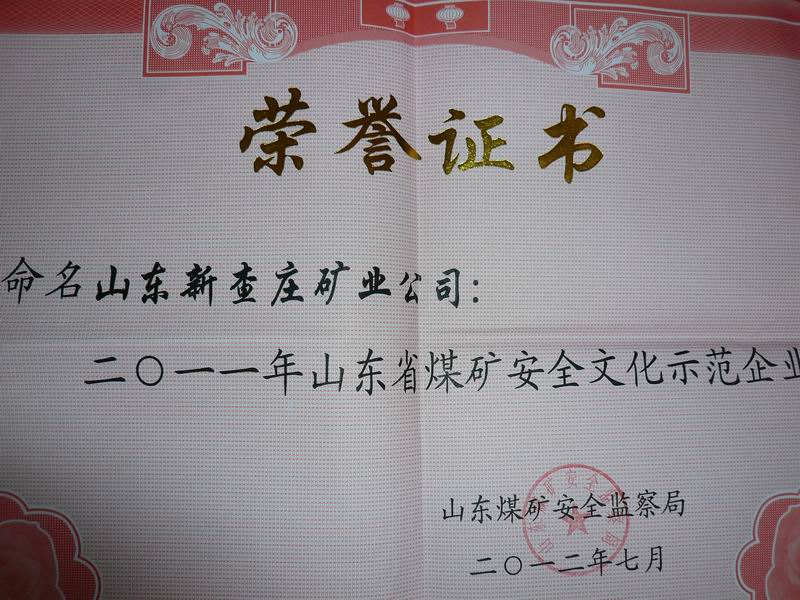 荣誉证书
命名山东新查庄矿业公司：
二〇一一年山东省煤矿安全文化示范企业
山东煤矿安全监察局
二〇一二年七月
山东煤矿安全监察局